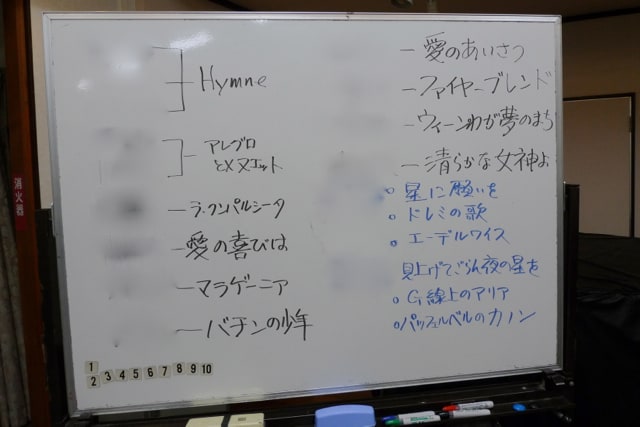 Hymne
アレグロ
とメヌエット
ラ・クンパルシータ
愛の喜びは
マラゲーニア
バチンの少年
1
2 3 4 5 6 7 8 9 10
愛のあいさつ
ファイヤーブレンド
ウィーンわが夢のまち
清らかな女神よ
星に願いを
ドレミの歌
エーデルワイス
見上げてごらん夜の星を
G線上のアリア
パッフェルベルのカノン
消火器